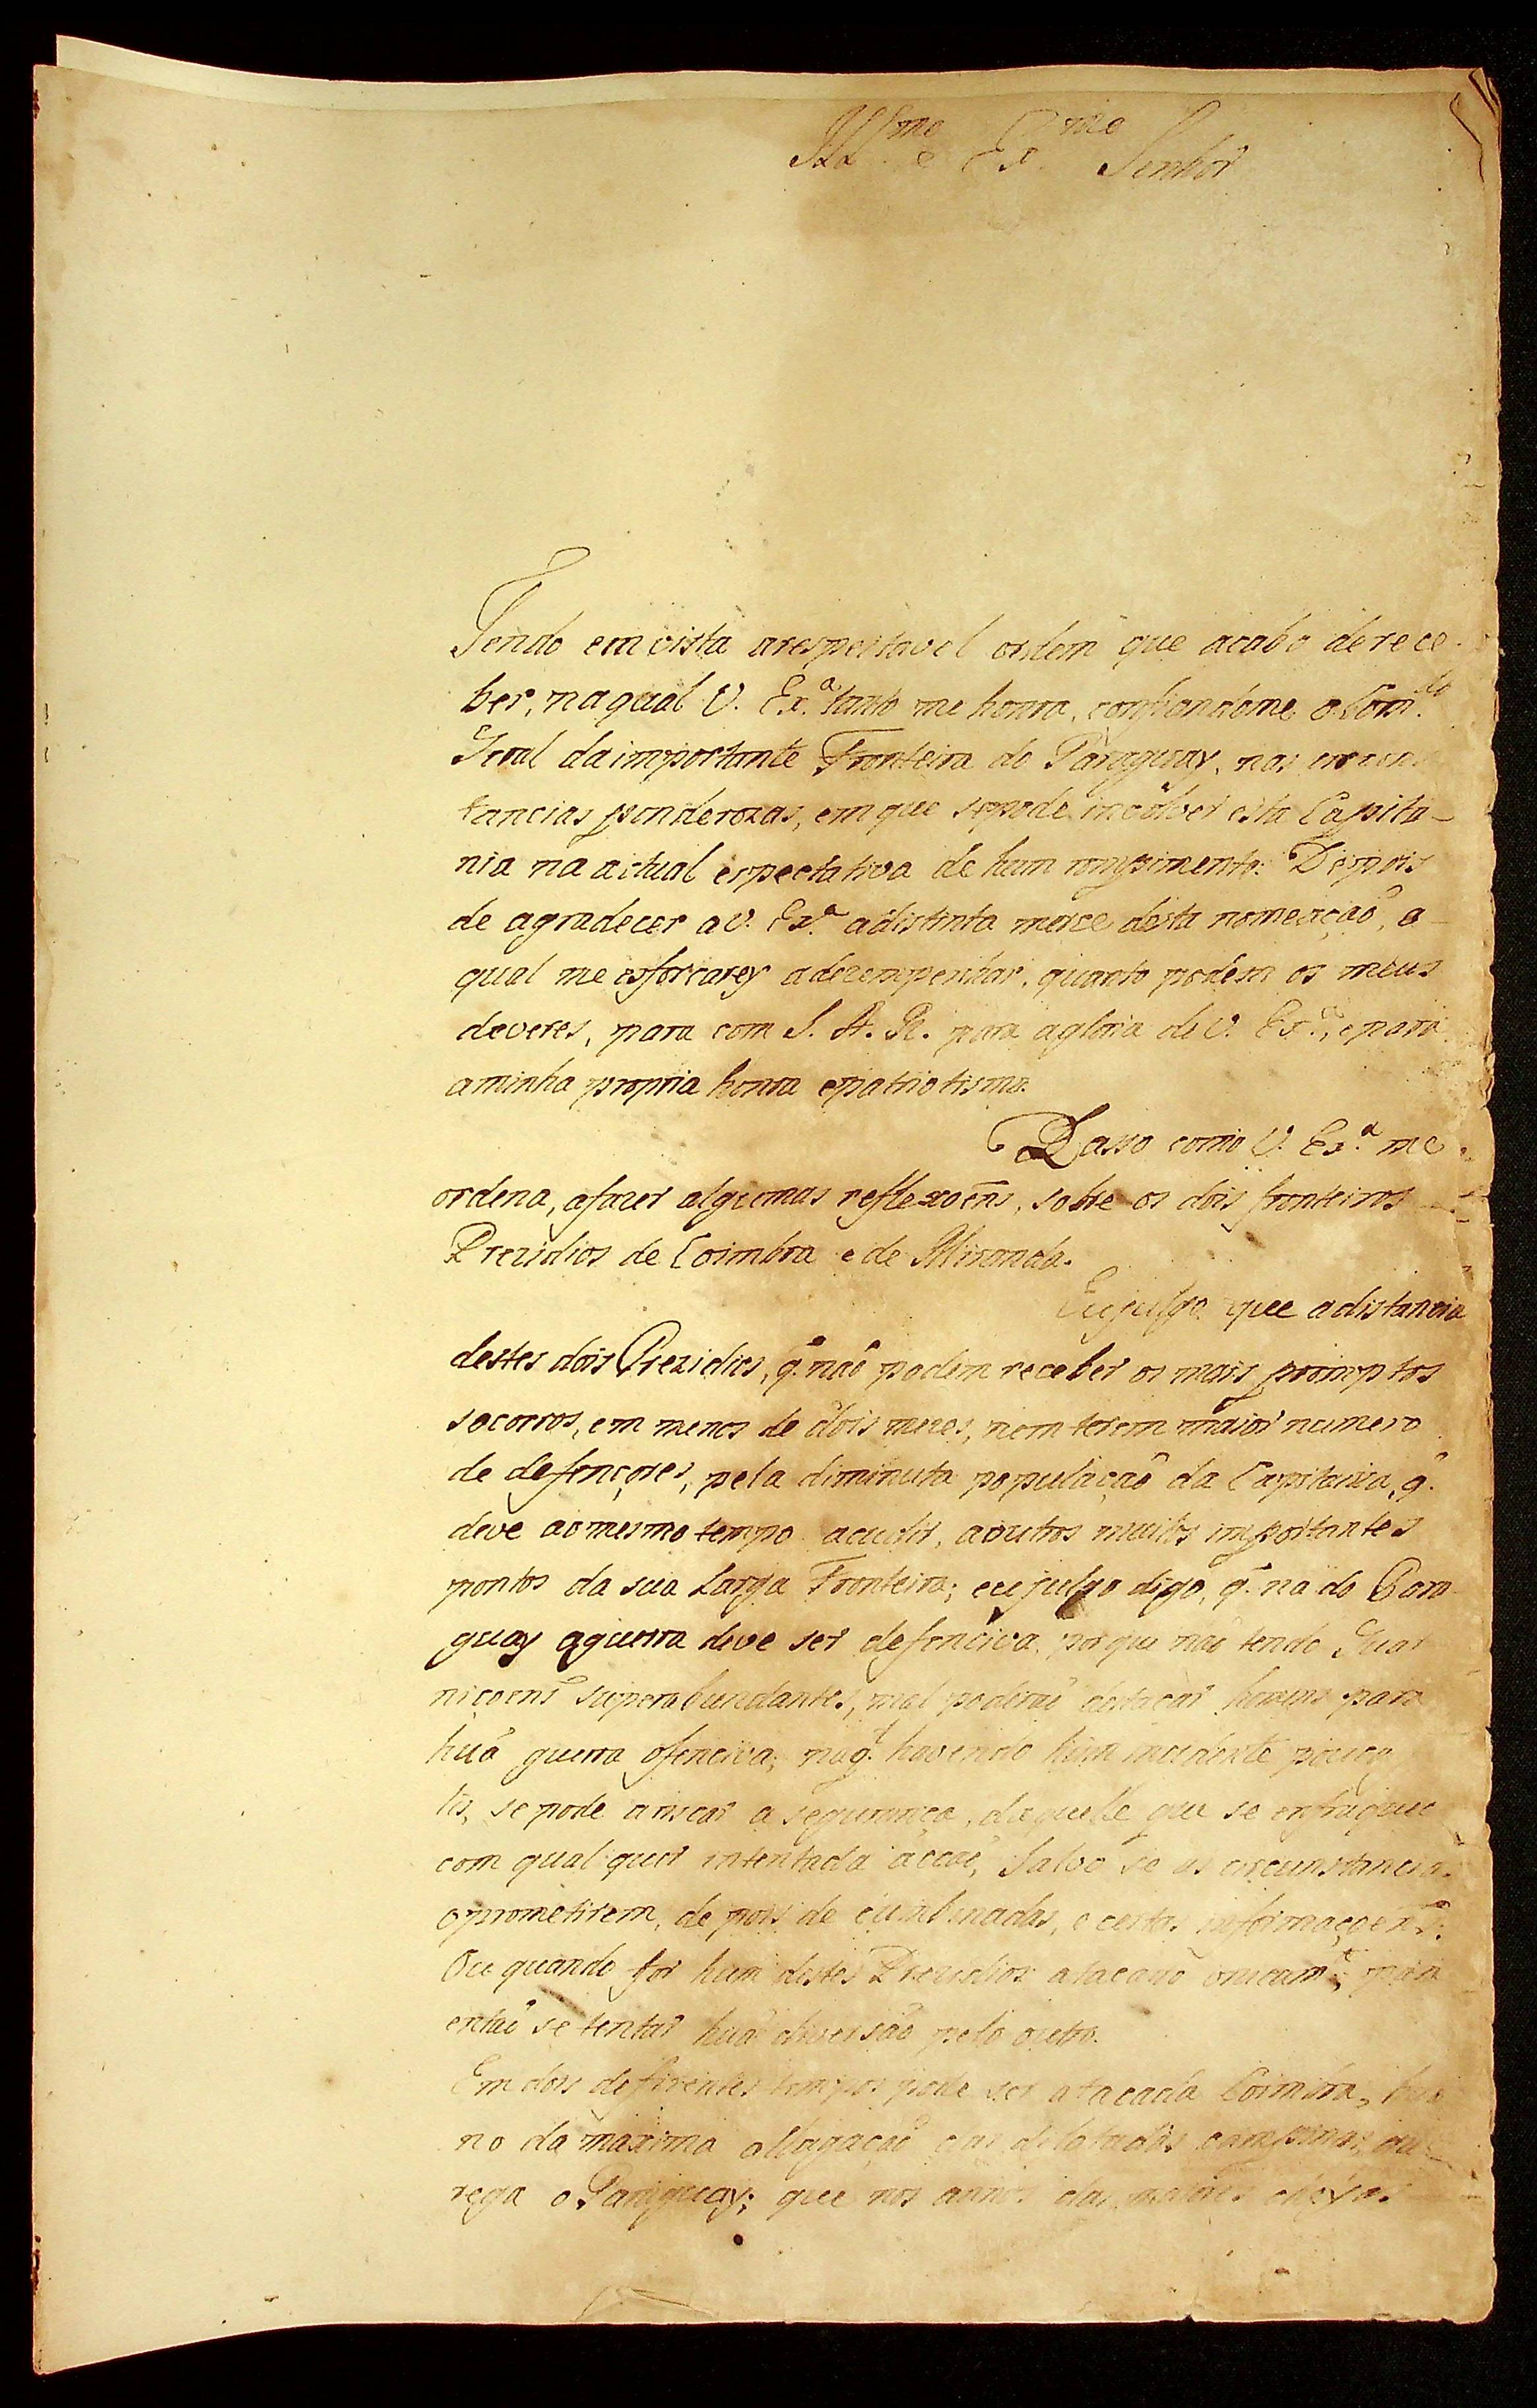 Ill.mo e Ex.mo Senhor
Tendo em vista arespeitavel ordem que acabo derece-
ber, naqual V. Ex.a tanto me honra, confiandome o Com.do
Geral daimportante Fronteira do Paraguay, nas circuns
tancias ponderozas, emque sepode involver esta Capita-
nia na actual expectativa de hum rompimento: Depois
de agradecer a V. Ex.a adistinta merce desta nomeação, a
qual me esforcarey adezempenhar, quanto podem os meus
deveres, para com S. A. R. para agloria de V. Ex.a, epara
aminha propria honra epatriotismo.
Passo como V. Ex.a me
ordena, afazer algumas reflexoens, sobre os dois fronteiros
Prezidios de Coimbra e de Miranda.
Eujulgo que adistancia
destes dois Prezidios, q̃ não podem receber os mais promptos
socorros, em menos de dois mezes, nem terem maior numero
de defençores, pela diminuta população da Capitania, q̃
deve aomesmo tempo acudir, aoutros muitos importantes
pontos da sua Larga Fronteira; eujulgo digo, q̃ na do Para
guay aguerra deve ser defenciva, porque não tendo Guar
niçoens superabundantes, mal poderão destacar homens para
huã guerra ofenciva; naq.l havendo hum incidente
se pode ariscar a segurança, daquelle que se enfraquece
com qualquer intentada acção, Salvo se as circunstancias
oprometirem, depois de cumbinadas, e certas informaçoens:
Ou quando for hum destes Prezidios atacado unicam.te, para
então se tentar huã diversão pelo outro.
Em dois deferentes tempos pode ser atacada Coimbra, hum
no da maxima allagação das dilatadas campinas, que
rega o Paraguay; que nos annos das maiores cheyas